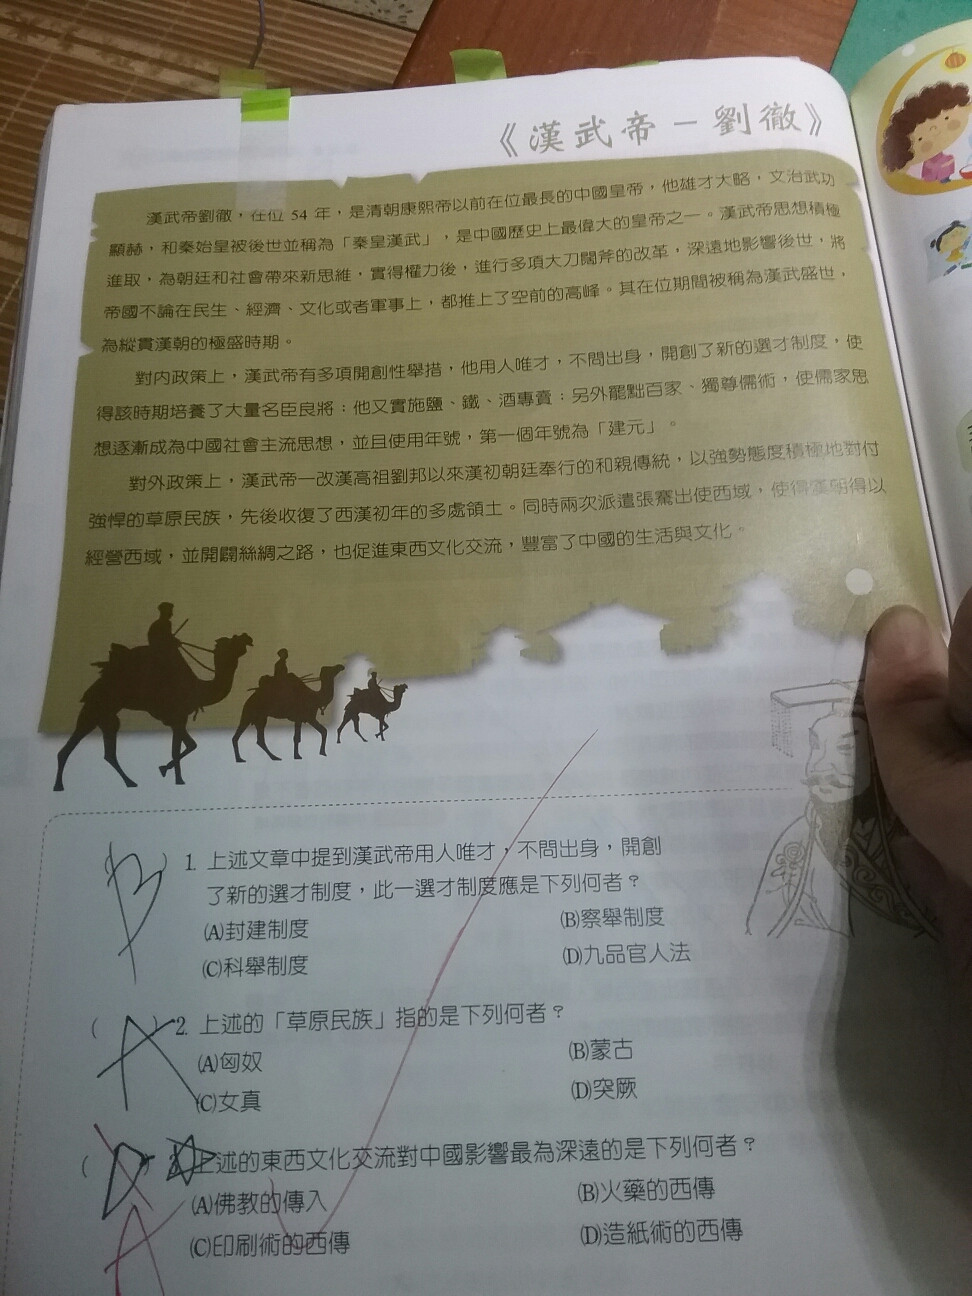 《漢武帝－劉徹》
漢武帝劉徹，在位 54 年，是清朝康熙帝以前在位最長的中國皇帝，他雄才大略，文治武功
顯赫，和秦始皇被後世並稱為「秦皇漢武」，是中國歷史上最偉大的皇帝之一。漢武帝思想積極
進取，為朝廷和社會帶來新思維，實得權力後，進行多項大刀闊斧的改革，深遠地影響後世，將
帝國不論在民生、經濟、文化或者軍事上，都推上了空前的高峰。其在位期間被稱為漢武盛世，
為縱貫漢朝的極盛時期。
對內政策上，漢武帝有多項開創性舉措，他用人唯才，不問出身，開創了新的選才制度，使
得該時期培養了大量名臣良將；他又實施鹽、鐵、酒專賣；另外罷黜百家、獨尊儒術，使儒家思
想逐漸成為中國社會主流思想，並且使用年號，第一個年號為「建元」。
對外政策上，漢武帝一改漢高祖劉邦以來漢初朝廷奉行的和親傳統，以強勢態度積極地對付
強悍的草原民族，先後收復了西漢初年的多處領土。同時兩次派遣張騫出使西域，使得漢朝得以
經營西域，並開闢絲綢之路，也促進東西文化交流，豐富了中國的生活與文化。
(B) 1. 上述文章中提到漢武帝用人唯才，不問出身，開創
了新的選才制度，此一選才制度應是下列何者？
(A)封建制度 (B)察舉制度
(C)科舉制度 (D)九品官人法
(A) 2. 上述的「草原民族」指的是下列何者？
(A)匈奴 (B)蒙古
(C)女真 (D)突厥
(D) 3. 上述的東西文化交流對中國影響最為深遠的是下列何者？
(A)佛教的傳入 (B)火藥的西傳
A (C)印刷術的西傳 (D)造紙術的西傳